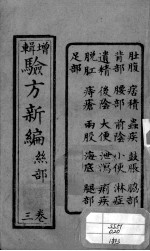 增輯
驗方新編
絲部
卷三
肚腹 痞積 蟲疾 鼓脹 脇部
背部 腰部 前陰 小便 淋症
遺精 後陰 大便 泄瀉 痢疾
脫肛 痔瘡 兩股 海底 腿部
足部